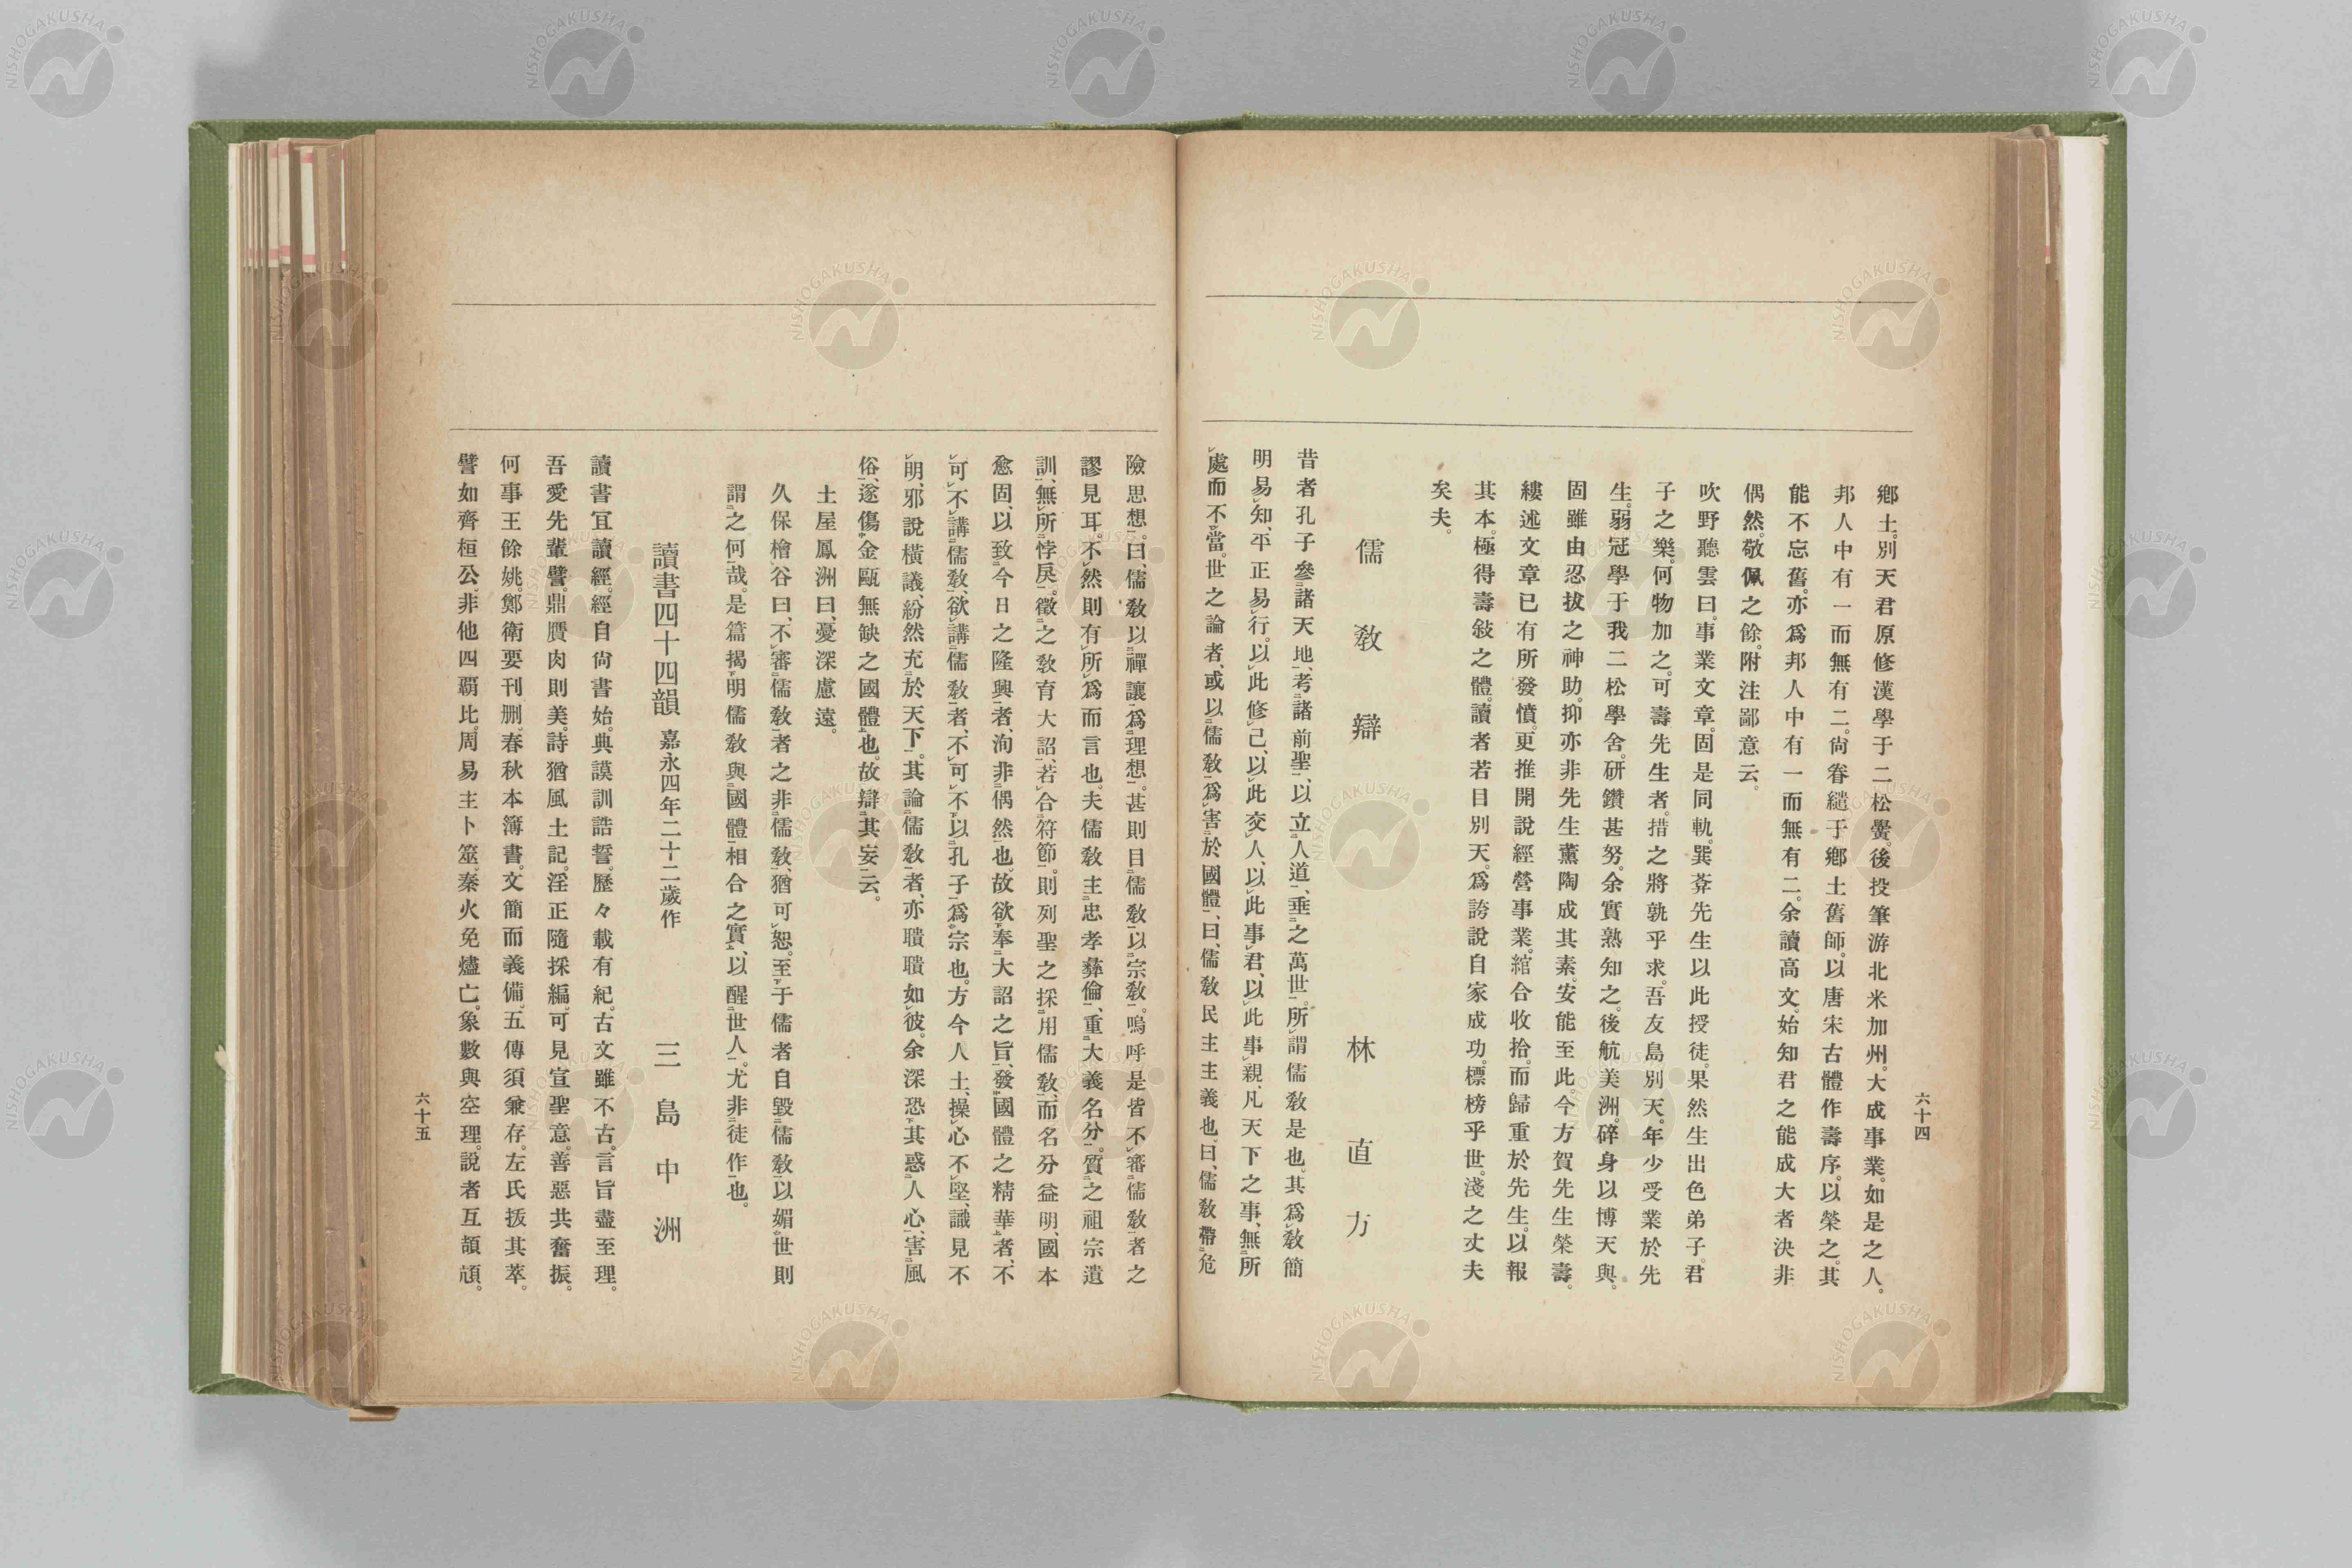 六十四
鄕土。別天君原修漢學于二松黌。後投筆游北米加州。大成事業。如是之人。
邦人中有一而無有二。尙眷繾于鄕土舊師。以唐宋古體作壽序。以榮之。其
能不忘舊。亦爲邦人中有一而無有二。余讀高文。始知君之能成大者決非
偶然。敬佩之餘。附注鄙意云。
吹野聽雲曰。事業文章。固是同軌。巽莽先生以此授徒。果然生出色弟子。君
子之樂。何物加之。可壽先生者。措之將孰乎求。吾友島別天。年少受業於先
生。弱冠學于我二松學舍。硏鑽甚努。余實熟知之。後航美洲。碎身以博天與。
固雖由忍拔之神助。抑亦非先生薰陶成其素。安能至此。今方賀先生榮壽。
縷述文章已有所發憤。更推開說經營事業。綰合收拾。而歸重於先生。以報
其本。極得壽敍之體。讀者若目別天。爲誇說自家成功。標榜乎世。淺之丈夫
矣夫。
儒敎辯　林直方
昔者孔子參諸天地、考諸前聖、以立人道、垂之萬世。所謂儒敎是也。其爲敎簡
明易知、平正易行。以此修己、以此交人、以此事君、以此事親、凡天下之事、無所
處而不當。世之論者、或以儒敎爲害於國體、曰、儒敎民主主義也。曰、儒敎帶危
險思想。曰、儒敎以禪讓爲理想。甚則目儒敎以宗敎。嗚呼是皆不審儒敎者之
謬見耳。不然則有所爲而言也。夫儒敎主忠孝彝倫、重大義名分。質之祖宗遺
訓、無所悖戾。徵之敎育大詔、若合符節。則列聖之採用儒敎、而名分益明、國本
愈固、以致今日之隆興者、洵非偶然也。故欲奉大詔之旨、發國體之精華者、不
可不講儒敎、欲講儒敎者、不可不以孔子爲宗也。方今人士、操心不堅、識見不
明、邪說橫議、紛然充於天下。其論儒敎者、亦聵聵如彼。余深恐其惑人心、害風
俗、遂傷金甌無缺之國體也。故辯其妄云。
土屋鳳洲曰、憂深慮遠。
久保檜谷曰、不審儒敎者之非儒敎、猶可恕。至于儒者自毀儒敎以媚世則
謂之何哉。是篇揭明儒敎與國體相合之實、以醒世人。尤非徒作也。
讀書四十四韻　嘉永四年二十二歲作　三島中洲
讀書宜讀經。經自尙書始。典謨訓誥誓。歷々載有紀。古文雖不古。言旨盡至理。
吾愛先輩譬。鼎贋肉則美。詩猶風土記。淫正隨採編。可見宣聖意。善惡共奮振。
何事王餘姚。鄭衞要刊删。春秋本簿書。文簡而義備。五傳須兼存。左氏拔其萃。
譬如齊桓公。非他四覇比。周易主卜筮。秦火免燼亡。象數與空理。說者互頡頏。
六十五